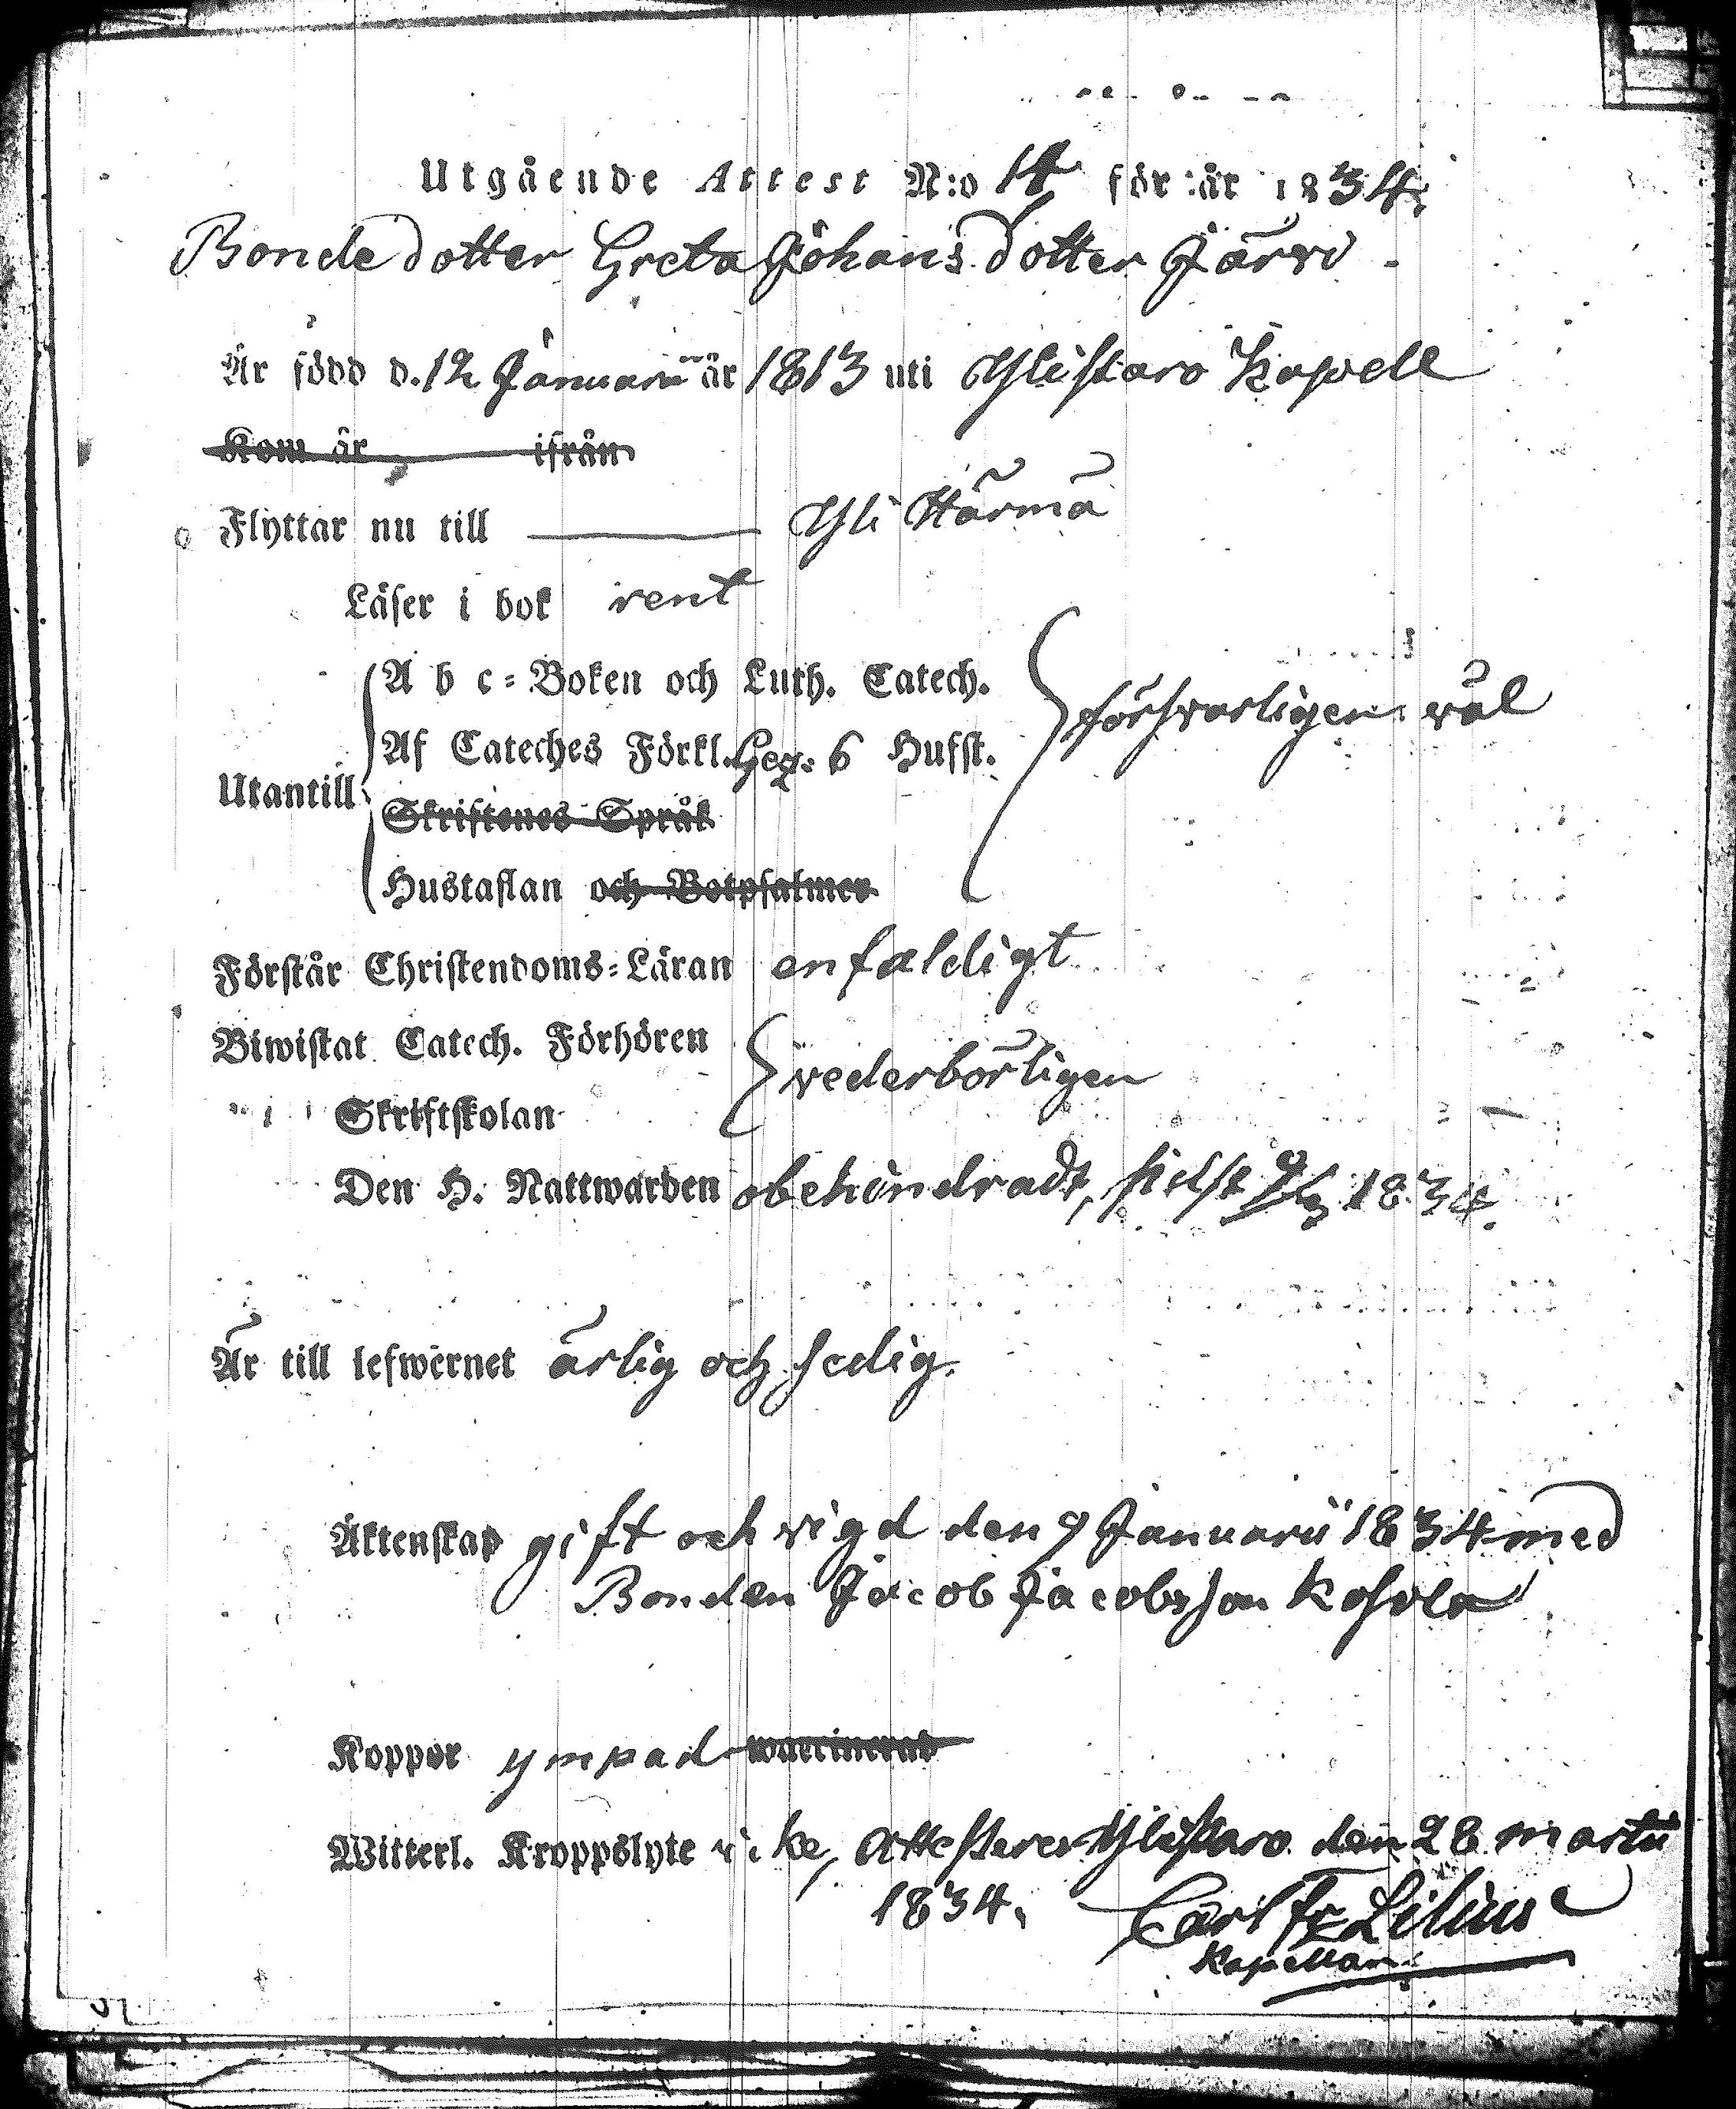 Utgående Attest N:o 14 för år 1834.
Bonde dotter Greta Johans dotter Järvi.
Är född d. 12 Januarii år 1813 uti Ylistaro Kapell
Kom år ifrån
Flyttar nu till Yli Härmä
Läser i bok rent
A b c=Boken och Luth. Catech.
försvarligen väl
Af Cateches Förkl. 6 Hufst.
Utantill
Skriftenes Språk
Hustaflan och Botpsalmer
Förstår Christendoms=Läran enfaldigt
Biwistat Catech. Förhören
vederbörligen
Skriftskolan
Den H. Nattwarden obehindradt, sidst 1834.
Är till lefwernet ärlig och sedig.
Äktenskap gift och vigd den 9 Januarii 1834 med
Bonden Jacob Jacobsson Kosola
Koppor ympad waccinerad
Witterl. Kroppslyte icke, Attesterer Ylistaro den 28 Martii
1834. Carl Fr Lilius
Kapellan.